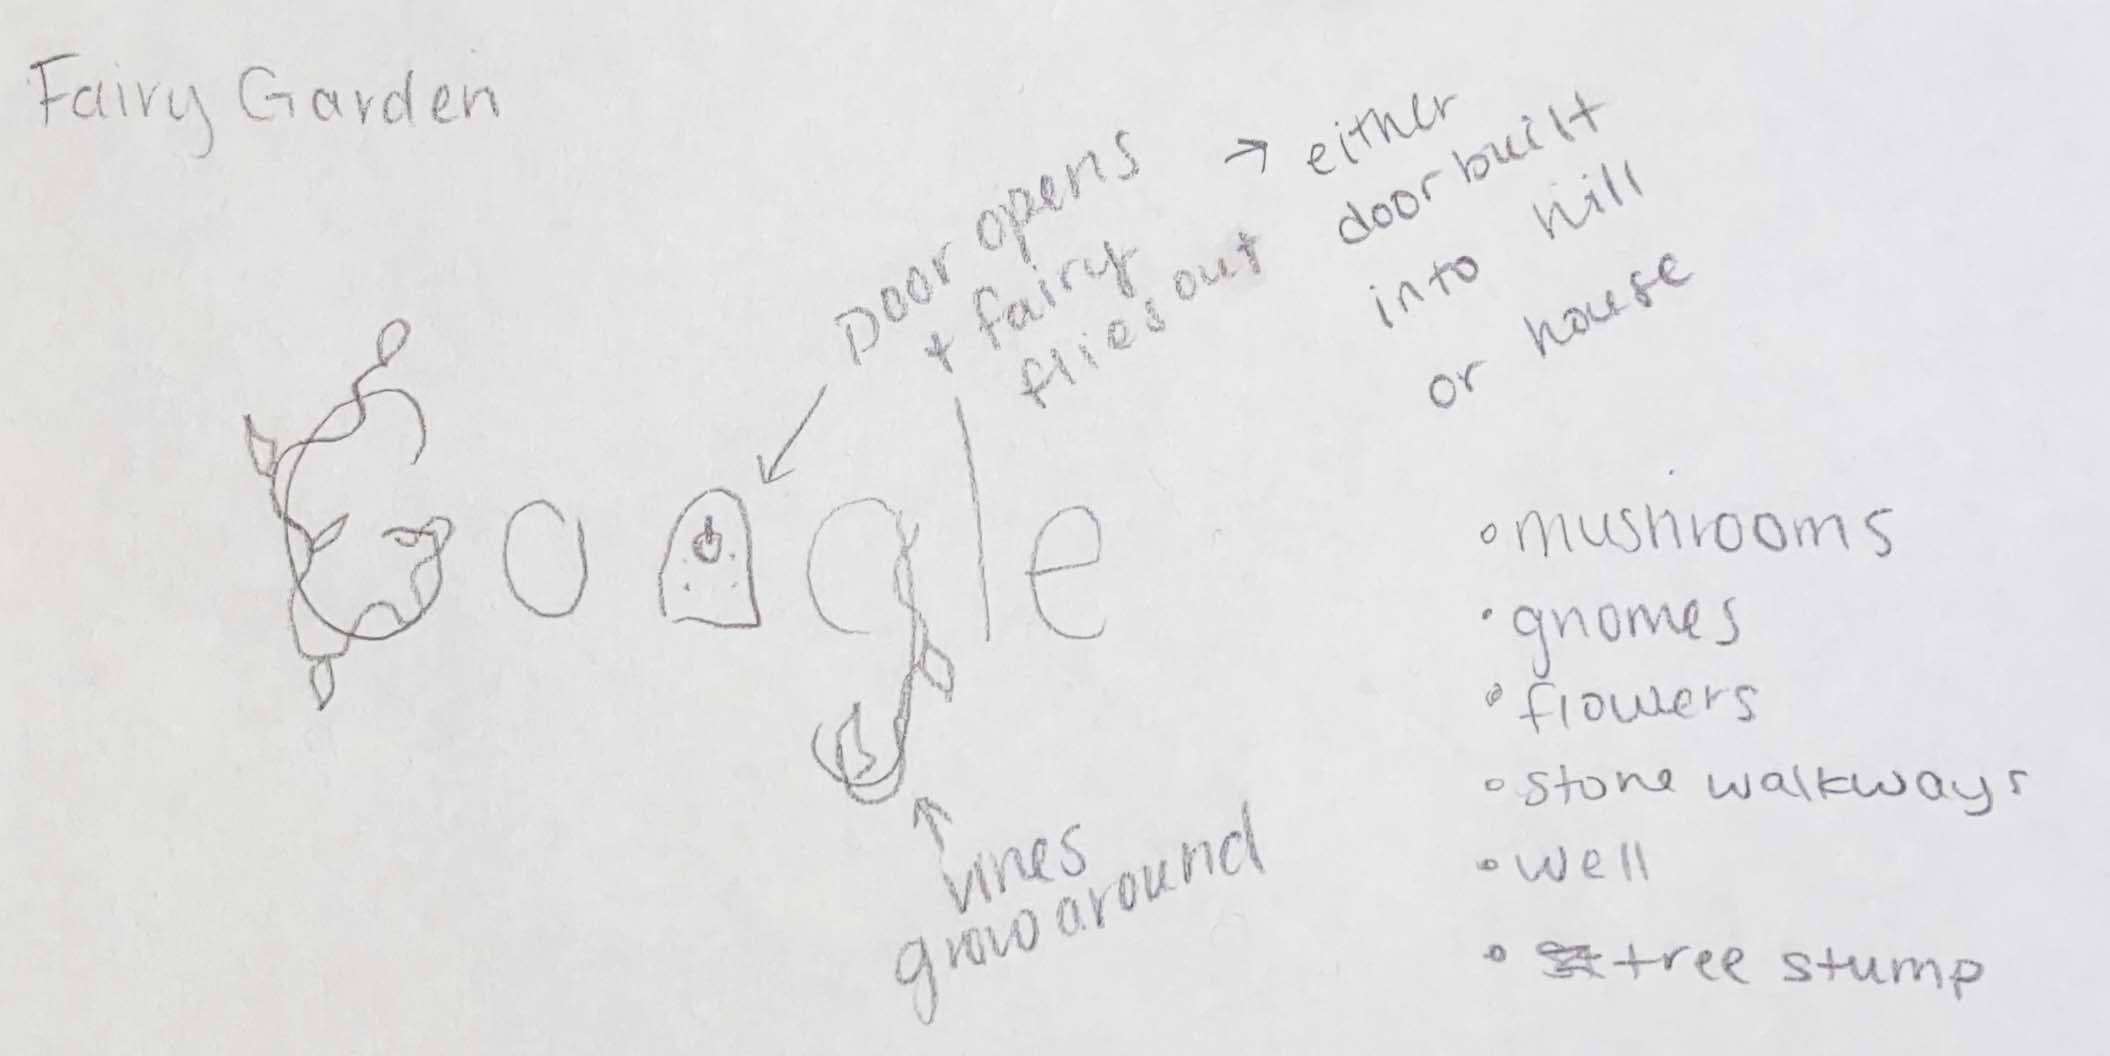 Fairy Garden
Door opens
+ fairy
flies out
→ either
door built
into hill
or house
Google
vines
grow around
• mushrooms
• gnomes
• flowers
• stone walkways
• well
• tree stump